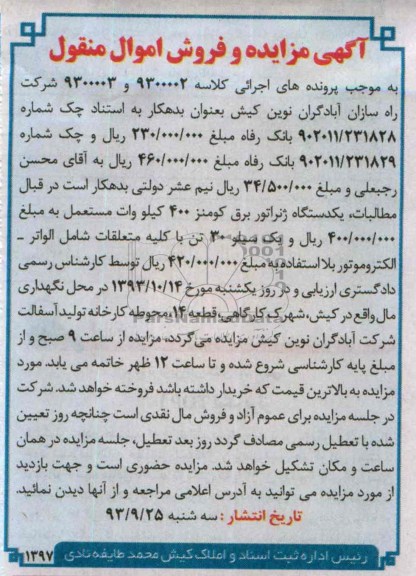 آگهی مزایده و فروش اموال منقول
به موجب پرونده های اجرائی کلاسه ۹۳۰۰۰۰۲ و ۹۳۰۰۰۰۳ شرکت
راه سازان آبادگران نوین کیش بعنوان بدهکار به استناد چک شماره
۹۰۲۰۱۱/۲۳۱۸۲۸ بانک رفاه مبلغ ۲۳۰/۰۰۰/۰۰۰ ریال و چک شماره
۹۰۲۰۱۱/۲۳۱۸۲۹ بانک رفاه مبلغ ۴۶۰/۰۰۰/۰۰۰ ریال به آقای محسن
رجبعلی و مبلغ ۳۴/۵۰۰/۰۰۰ ریال نیم عشر دولتی بدهکار است در قبال
مطالبات، یکدستگاه ژنراتور برق کومنز ۴۰۰ کیلو وات مستعمل به مبلغ
۴۰۰/۰۰۰/۰۰۰ ریال و یک سیلو ۳۰ تن با کلیه متعلقات شامل الواتر ـ
الکتروموتور بلا استفاده به مبلغ ۴۲۰/۰۰۰/۰۰۰ ریال توسط کارشناس رسمی
دادگستری ارزیابی و در روز یکشنبه مورخ ۱۳۹۳/۱۰/۱۴ در محل نگهداری
مال واقع در کیش، شهرک کارگاهی قطعه ۱۴، محوطه کارخانه تولید آسفالت
شرکت آبادگران نوین کیش مزایده می گردد، مزایده از ساعت ۹ صبح و از
مبلغ پایه کارشناسی شروع شده و تا ساعت ۱۲ ظهر خاتمه می یابد. مورد
مزایده به بالاترین قیمت که خریدار داشته باشد فروخته خواهد شد. شرکت
در جلسه مزایده برای عموم آزاد و فروش مال نقدی است چنانچه روز تعیین
شده با تعطیل رسمی مصادف گردد روز بعد تعطیل، جلسه مزایده در همان
ساعت و مکان تشکیل خواهد شد. مزایده حضوری است و جهت بازدید
از مورد مزایده می توانید به آدرس اعلامی مراجعه و از آنها دیدن نمائید.
تاریخ انتشار : سه شنبه ۹۳/۹/۲۵
رئیس اداره ثبت اسناد و املاک کیش محمد طایفه نادی
۱۳۹۷